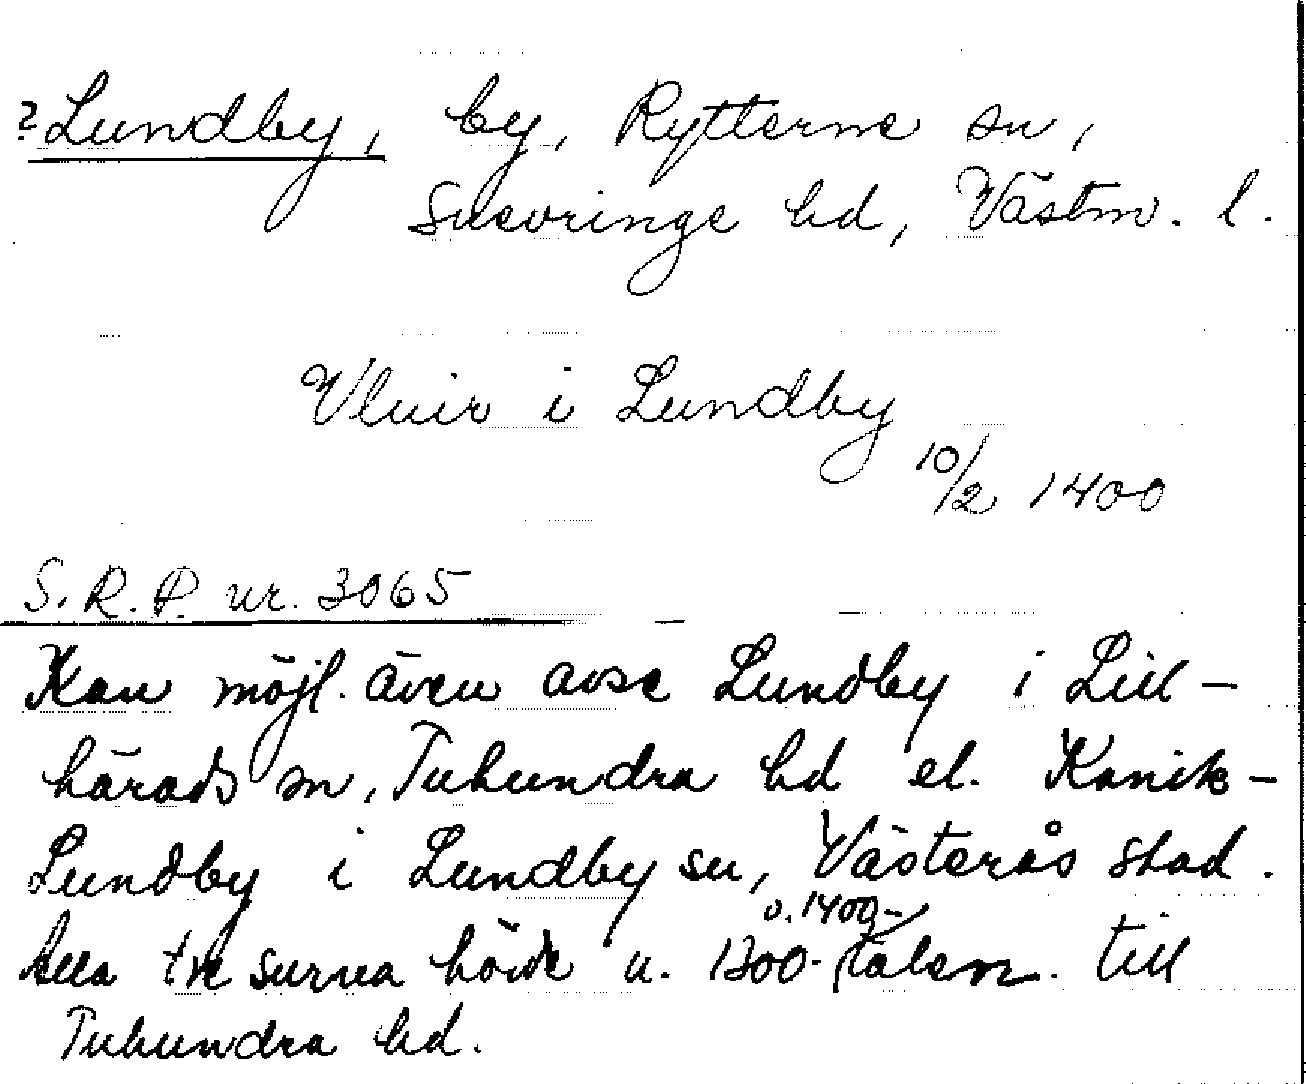 ? Lundby, by, Rytterne sn,
Snevringe hd, Västm. l.
Vluir i Lundby
10/2 1400
S. R. P. nr. 3065
Kan möjl. även avse Lundby i Lill-
härads sn, Tuhundra hd el. Kanik-
Lundby i Lundby sn, Västerås stad.
Alla tre snrna hörde u. 1300- o. 1400-talen till
Tuhundra hd.